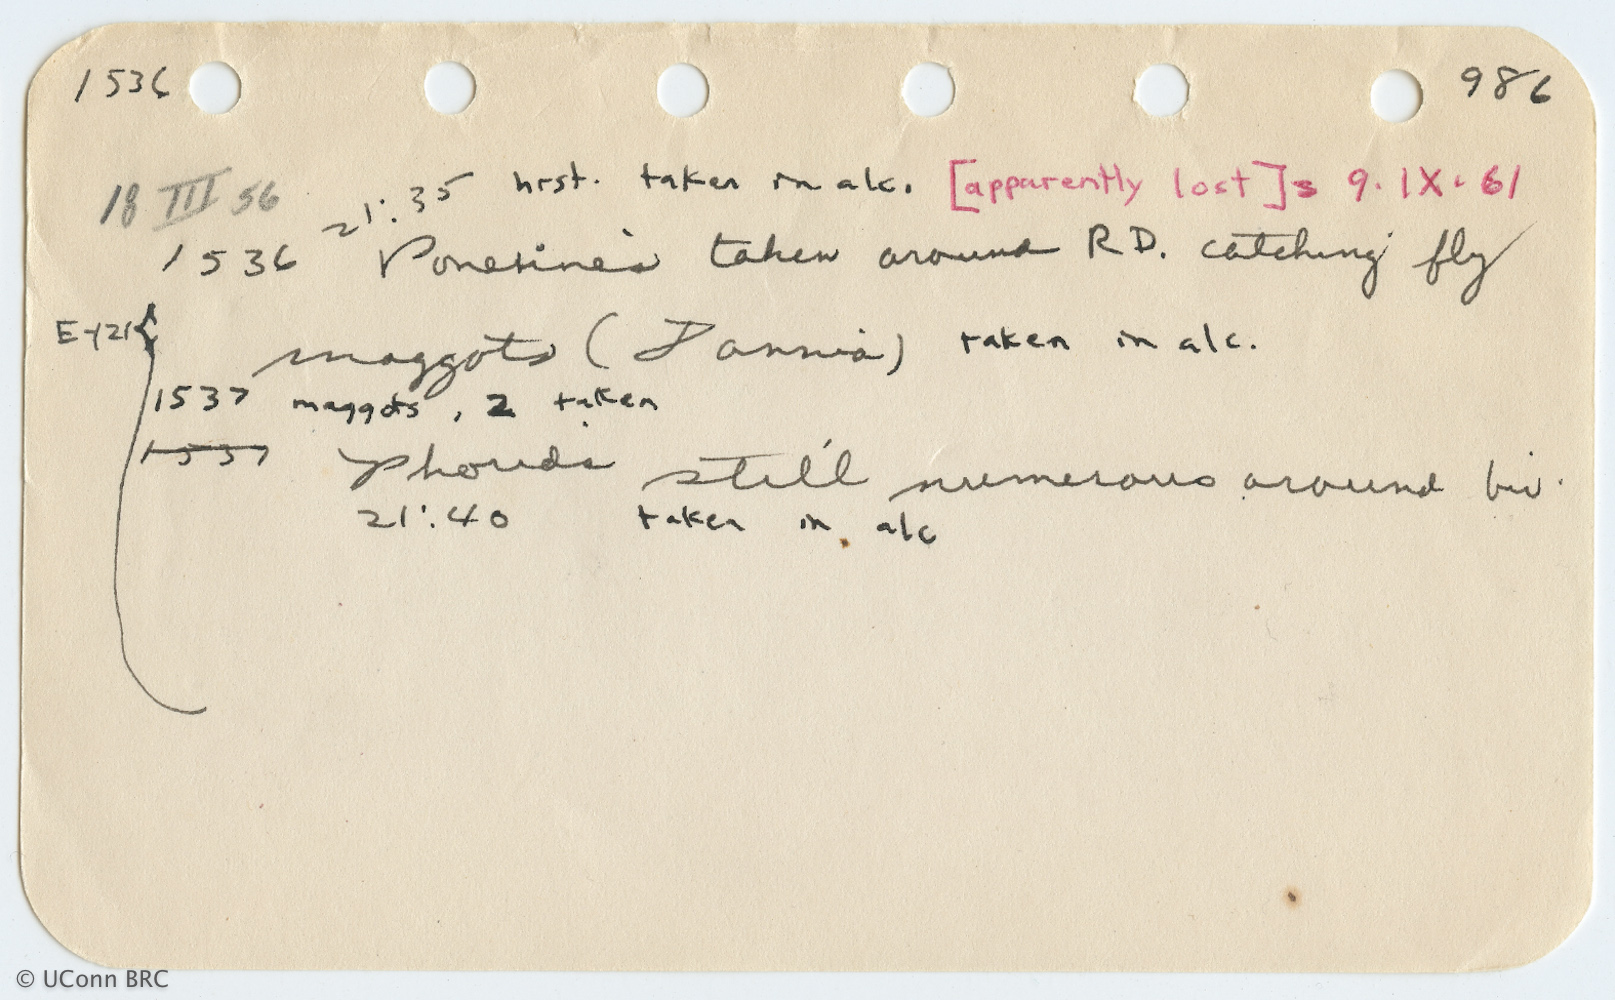 1536 986
18 III 56 21:35 hrst. taken in alc. [apparently lost] 9.IX.61
1536 Ponerines taken around R.D. catching fly
E-121 { maggots (Fannia) taken in alc.
1537 maggots, 2 taken
1537 Phorids still numerous around biv.
21:40 taken in alc
© UConn BRC